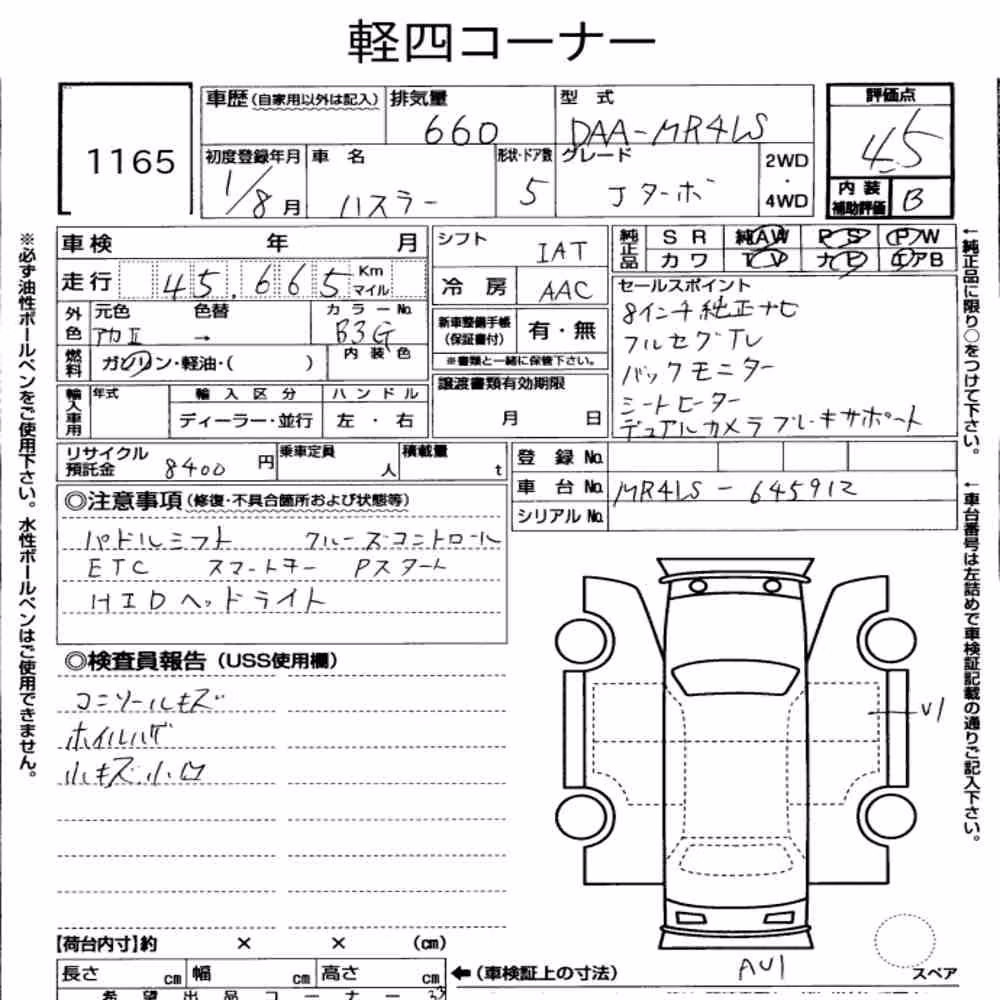 軽四コーナー
1165
車歴 (自家用以外は記入)
排気量
660
型式
DAA-MR4LS
評価点
4.5
初度登録年月
1/8月
車名
ハスラー
形状・ドア数
5
グレード
Jターボ
2WD
・
4WD
内装
補助評価
B
車検 年 月
走行 45,665 Km
マイル
外色
元色 色替
アカⅡ →
カラーNo.
B3G
燃料
ガソリン・軽油・( )
内装色
輸入車用
年式
輸入区分
ディーラー・並行
ハンドル
左・右
シフト
IAT
冷房
AAC
新車整備手帳
(保証書付)
有・無
※書類と一緒に保管下さい。
譲渡書類有効期限
月 日
純正品
SR 純AW PS P/W
カワ TV ナビ エアB
セールスポイント
8インチ純正ナビ
フルセグTV
バックモニター
シートヒーター
デュアルカメラブレーキサポート
リサイクル
預託金
8400 円
乗車定員
人
積載量
t
登録No.
車台No. MR4LS - 645912
シリアルNo.
◎注意事項 (修復・不具合箇所および状態等)
パドルシフト クルーズコントロール
ETC スマートキー Pスタート
HIDヘッドライト
◎検査員報告 (USS使用欄)
コンソールキズ
ホイルハゲ
小キズ小凹
U1
AU1
スペア
【荷台内寸】約 × × (cm)
長さ cm 幅 cm 高さ cm
←(車検証上の寸法)
希望出品コーナー
※必ず油性ボールペンをご使用下さい。水性ボールペンはご使用できません。
←純正品に限り○をつけて下さい。
←車台番号は左詰めで車検証記載の通りご記入下さい。